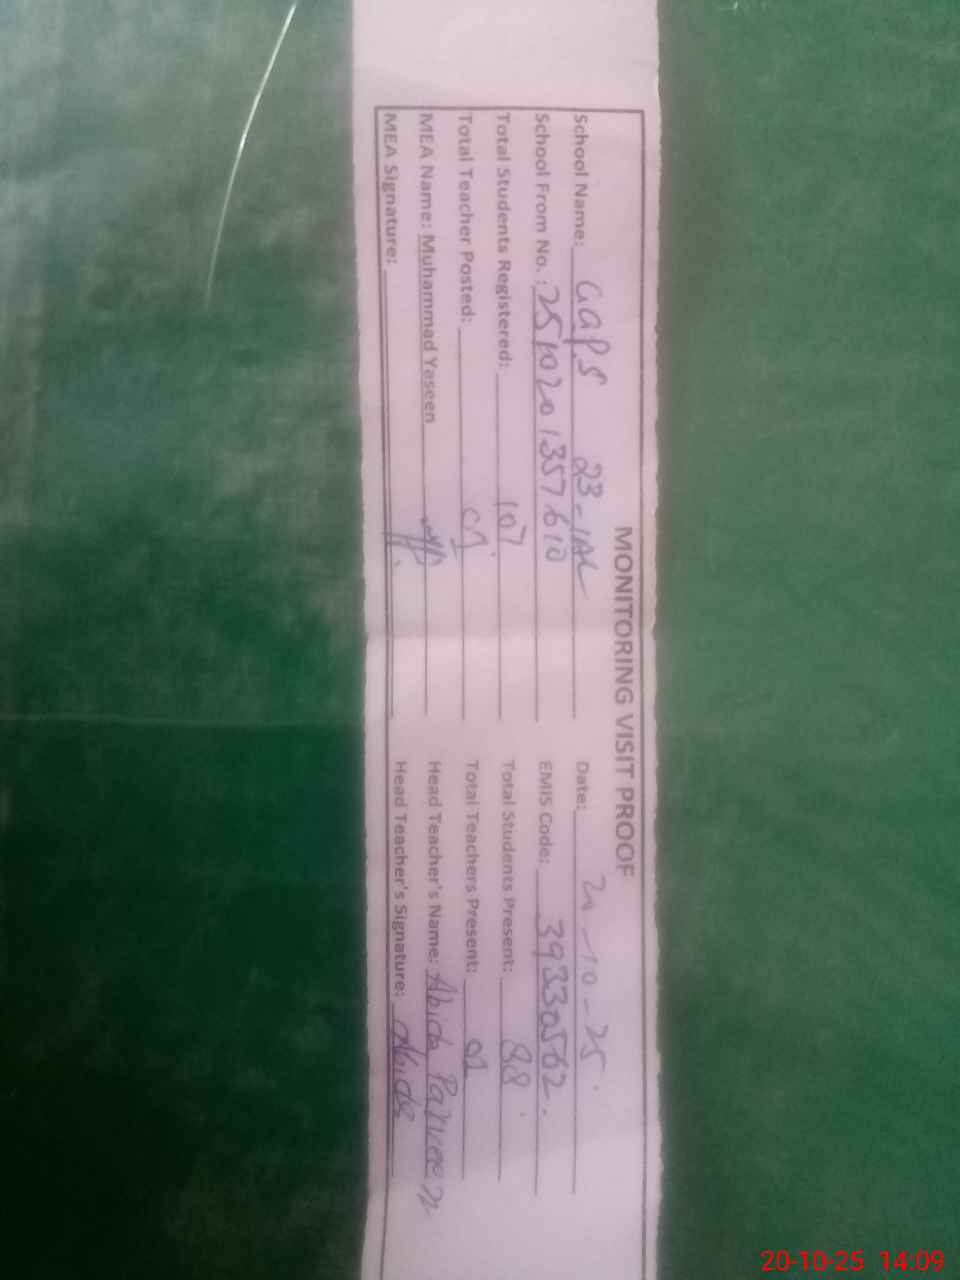 MONITORING VISIT PROOF
School Name: GGPS 23-1AL Date: 20-10-25
School From No. : 2510201357610 EMIS Code: 39330562.
Total Students Registered: 107 Total Students Present: 98
Total Teacher Posted: 02 Total Teachers Present: 02
MEA Name: Muhammad Yaseen Head Teacher's Name: Abida Parveen
MEA Signature: Head Teacher's Signature: Abida
20-10-25 14:09